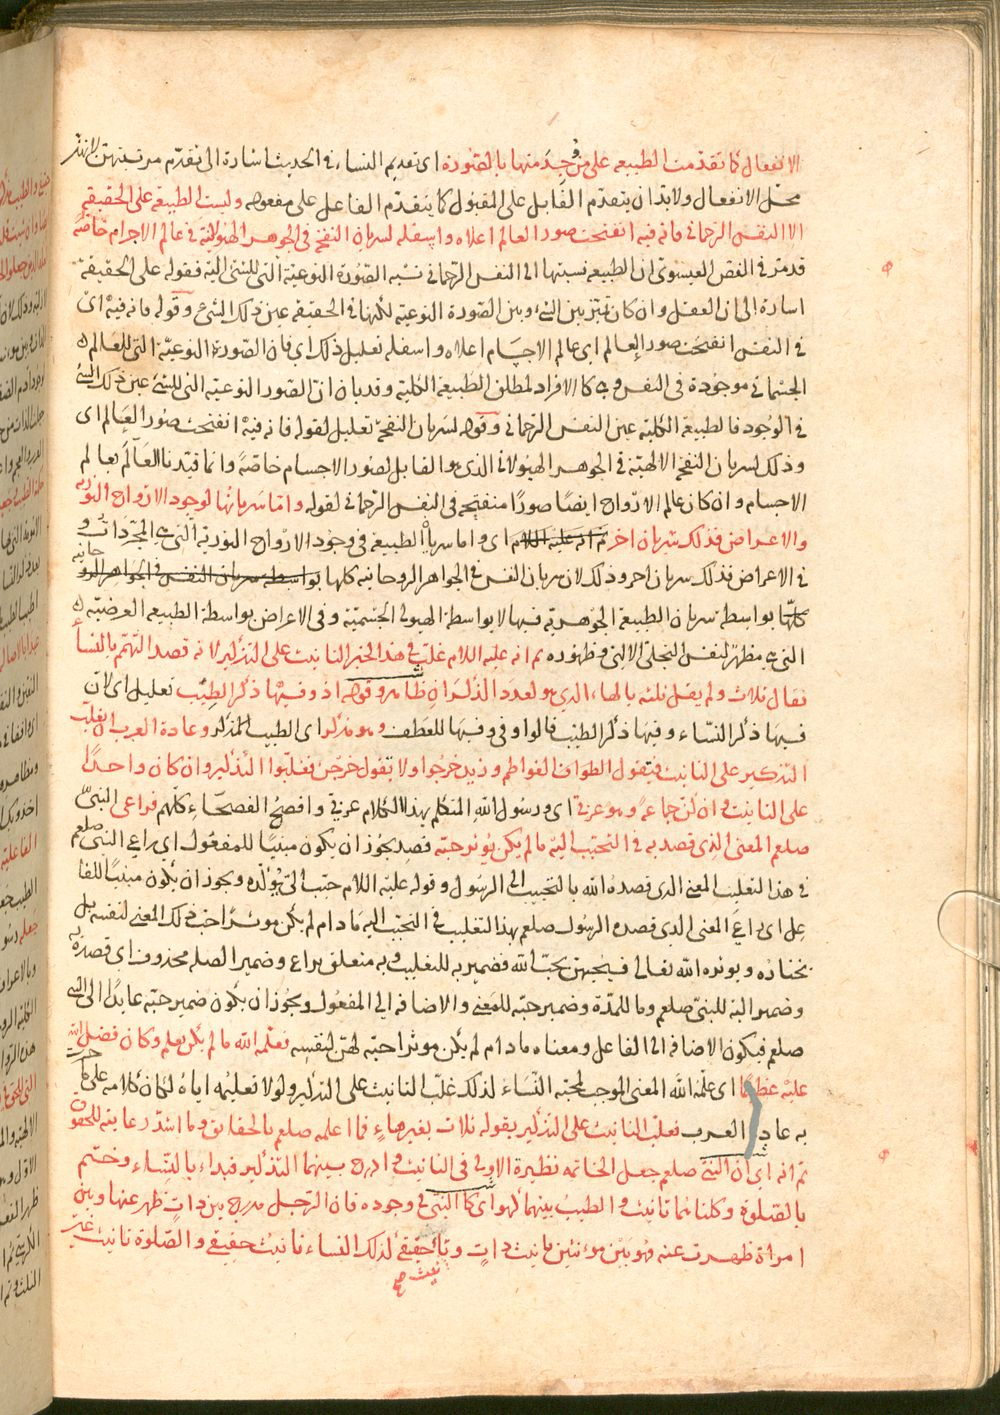 الانفعال كما تقدمت الطبيعة على من وجد منها بالصورة اى تقديم النساء فى الحديث اشارة الى تقدم مرتبتهن لانهن
محل الانفعال ولابد ان يتقدم القابل على المقبول كما يتقدم الفاعل على مفعوله وليست الطبيعة على الحقيقة
الا النفس الرحمانى فانه فيه انفتحت صور العالم اعلاه واسفله لسريان النفخة فى الجوهر الهيولانى فى عالم الاجرام خاصة
قد مر فى الفص العيسوى ان الطبيعة نسبتها الى النفس الرحمانى نسبة الصورة النوعية التى للشئ اليه فقوله على الحقيقة
اشارة الى ان العقل وان كان يميز بين الشئ وبين الصورة النوعية لكنها فى الحقيقة عين ذلك الشئ وقوله فانه فيه اى
فى النفس انفتحت صور العالم اى عالم الاجسام اعلاه واسفله تعليل ذلك اى فان الصورة النوعية التى للعالم
الجسمانى موجودة فى النفس وهى كالافراد لمطلق الطبيعة الكلية وقد بان ان الصور النوعية التى للشئ عين ذلك الشئ
فى الوجود فالطبيعة الكلية عين النفس الرحمانى وقوله لسريان النفخة تعليل لقوله فانه فيه انفتحت صور العالم اى
وذلك لسريان النفخة الالهية فى الجوهر الهيولانى الذى هو القابل لصور الاجسام خاصة وانما قيدنا العالم بعالم
الاجسام وان كان عالم الارواح ايضا صورا منفتحة فى النفس الرحمانى لقوله واما سريانها لوجود الارواح النورية
والاعراض فذلك سريان اخر ثم انه عليه السلام اى واما سريان الطبيعة فى وجود الارواح النورية التى هى المجردات و
فى الاعراض فذلك سريان اخر وذلك لان سريان النفس فى الجواهر الروحانية كلها بواسطة سريان النفس فى الجواهر الرو حانية
كلها بواسطة سريان الطبيعة الجوهرية فيها لا بواسطة الهيولى الجسمية وفى الاعراض بواسطة الطبيعة العرضية
التى هى مظهر لنفس التجلى الالهى وظهوره ثم انه عليه السلام غلب فى هذا الخبر التانيث على التذكير لانه قصد التهمم بالنساء
فقال ثلاث ولم يقل ثلثة بالهاء الذى هو لعدد الذكران ظاهر وقوله اذ وفيها ذكر الطيب تعليل اى لان
فيها ذكر النساء وفيها ذكر الطيب فالواو فى وفيها للعطف وهو مذكر اى الطيب المذكر وعادة العرب ان يغلب
التذكير على التانيث فيقول الفواطم وزيد خرجوا ولا يقول خرجن فغلبوا التذكير وان كان واحدا
على التانيث وان كن جماعة وهو عربى اى ورسول الله المتكلم بهذا الكلام عربى وافصح الفصحاء كلهم فراعى النبى
صلعم المعنى الذى قصد به فى التحبب اليه ما لم يكن يؤثر حبه قصد يجوز ان يكون مبنيا للمفعول اى راعى النبى صلعم
فى هذا التغليب المعنى الذى قصده الله بالتحبيب الى الرسول وقوله عليه السلام حبب الى يؤكده ويجوز ان يكون مبنيا للفا
عل اى راعى المعنى الذى قصده الرسول صلعم بهذا التغليب فى التحبب اليه ما دام لم يكن موثرا حب ذلك المعنى لنفسه بل
يختاره ويوثره الله تعالى فيحبهن بحب الله فضمير به للتغليب وبه متعلق براعى وضمير الصلة محذوف اى قصده به
وضمير اليه للنبى صلعم وما للمدة وضمير حبه للمعنى والاضافة الى المفعول ويجوز ان يكون ضمير حبه عايدا الى النبى
صلعم فيكون الاضافة الى الفاعل ومعناه ما دام لم يكن موثرا حبه لهن لنفسه فعلمه الله ما لم يكن يعلم وكان فضل الله
عليه عظيما اى علمه الله المعنى الموجب لمحبة النساء لذلك غلب التانيث على التذكير ولولا تعليمه اياه لكان كلامه على ما جرت
به عادة العرب فغلب التانيث على التذكير بقوله ثلاث بغير هاء فما اعلمه صلعم بالحقايق وما اشد رعايته للحقوق
ثم انه اى ان النبى صلعم جعل الخاتمة نظيرة الاولى فى التانيث وادرج بينهما التذكير فبداء بالنساء وختم
بالصلوة وكلتاهما تانيث والطيب بينهما كهو اى كالنبى فى وجوده فان الرجل مدرج بين ذات ظهر عنها وبين
امراة ظهرت عنه فهو بين مؤنثين تانيث ذات وتانيث حقيقى لذلك النساء تانيث حقيقى والصلوة تانيث غير
نيث صح